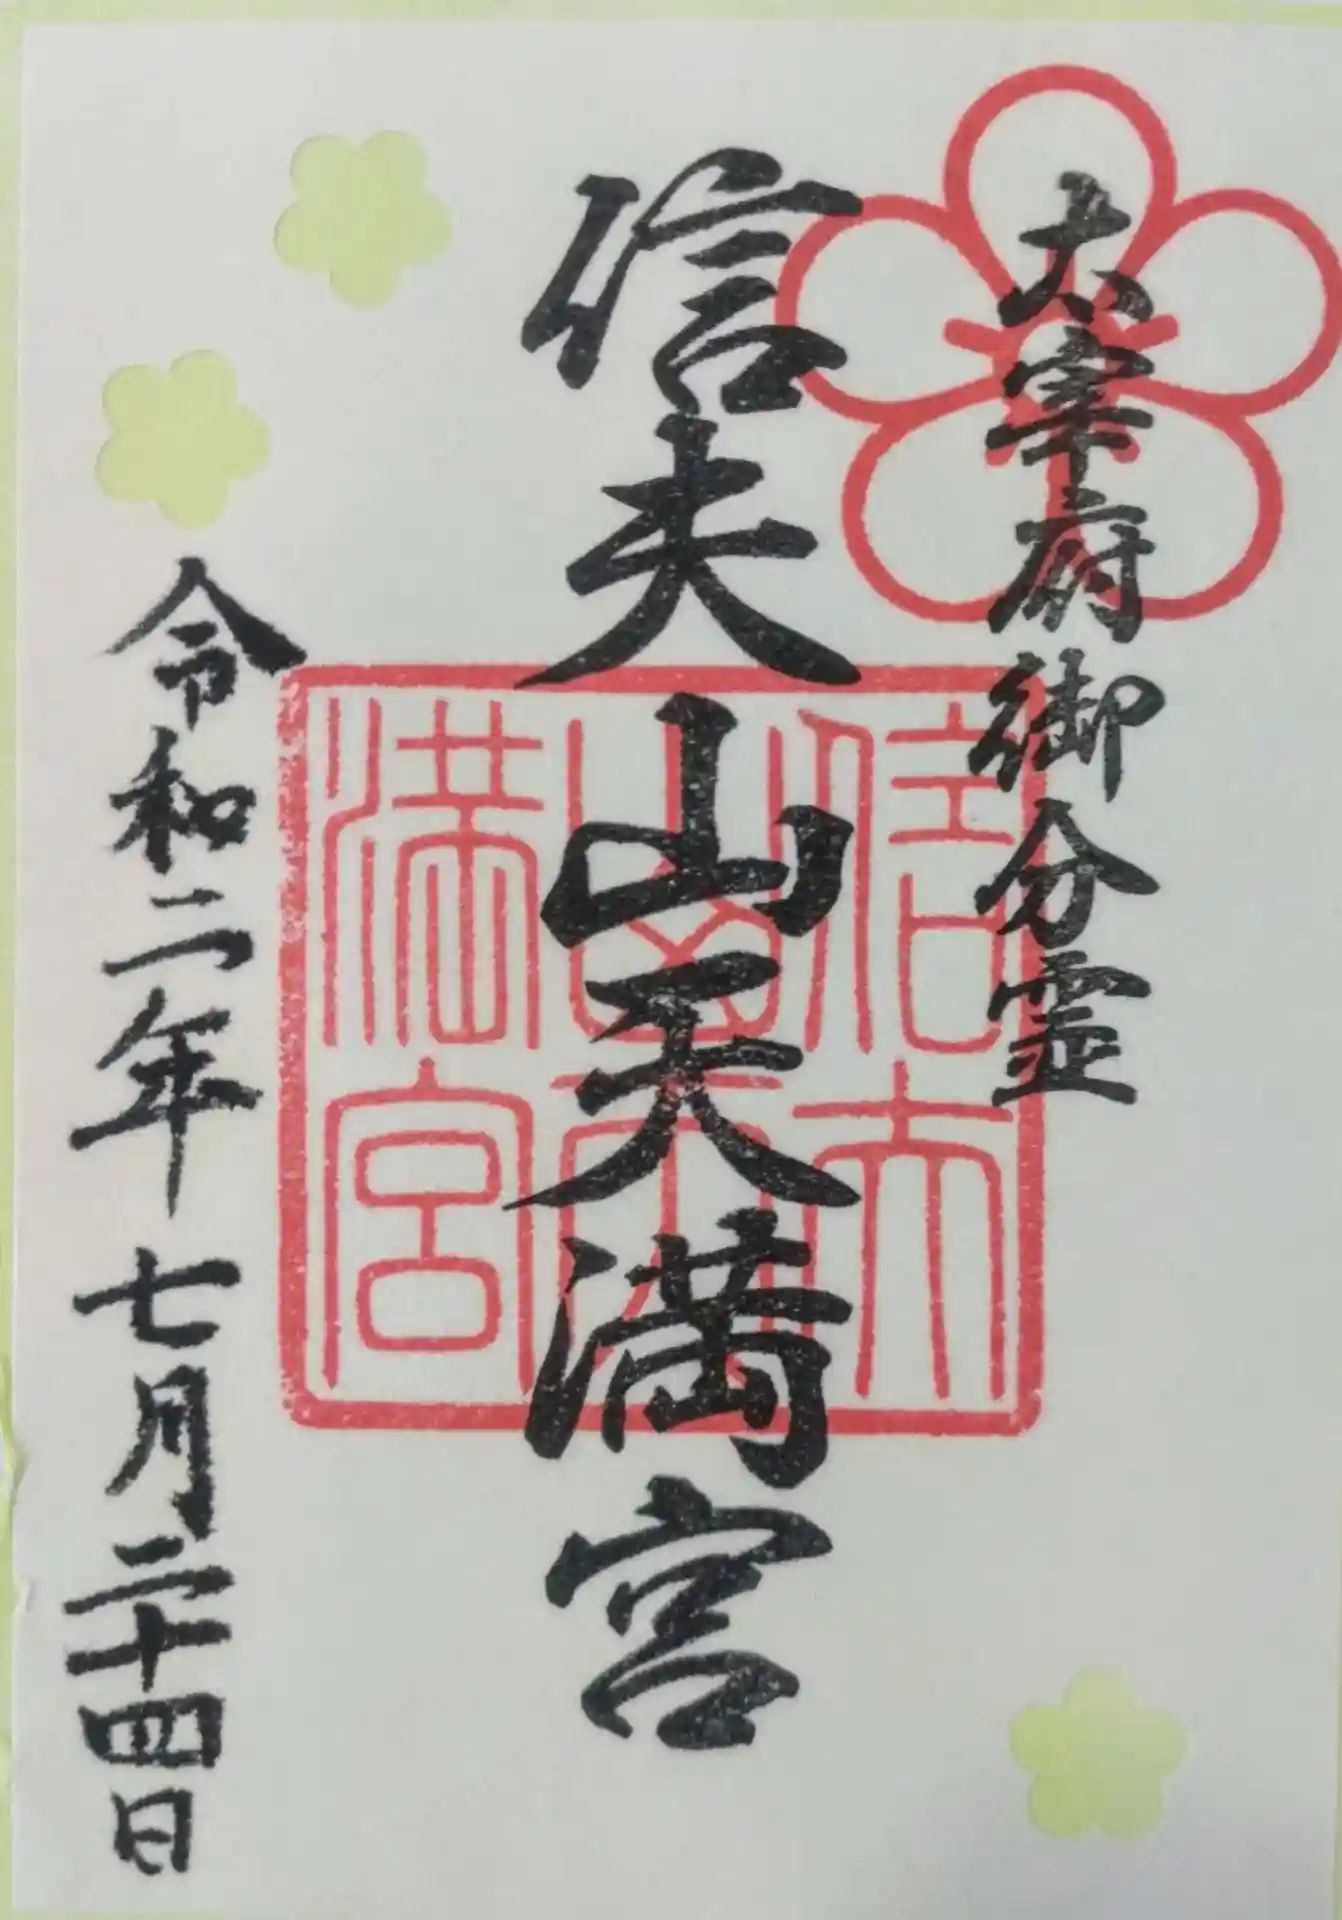 太宰府御分霊
信夫山天満宮
信夫
山天
満宮
令和二年七月二十四日